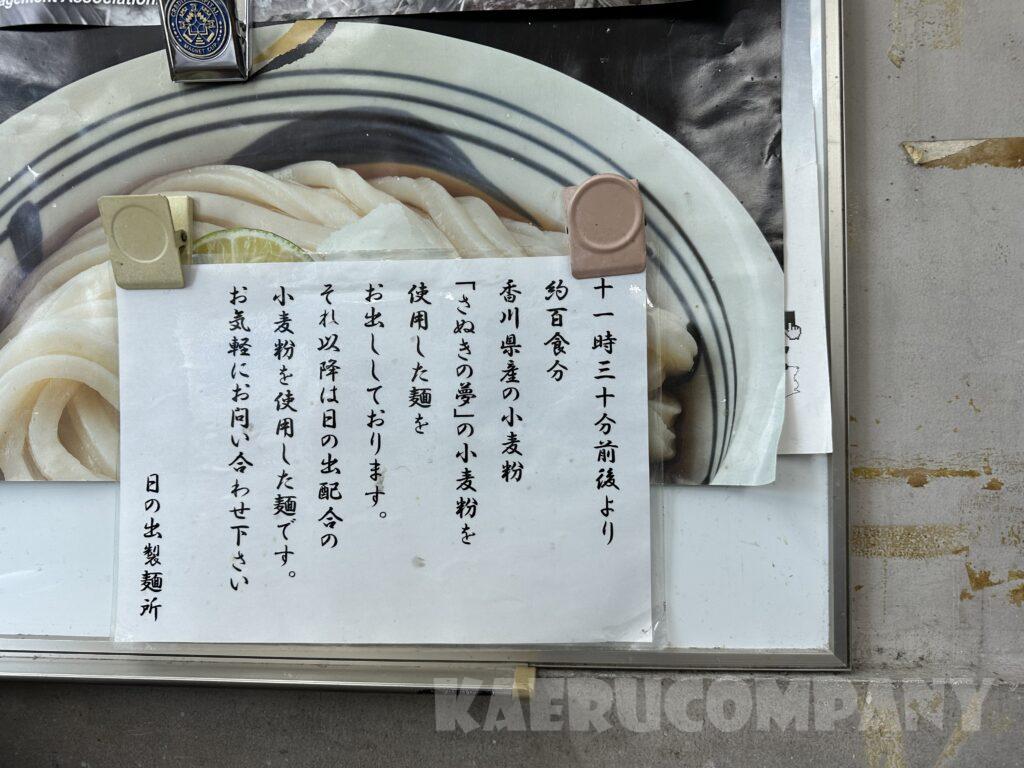 agement Association
MAGNET CLIP
十一時三十分前後より
約百食分
香川県産の小麦粉
「さぬきの夢」の小麦粉を
使用した麺を
お出ししております。
それ以降は日の出配合の
小麦粉を使用した麺です。
お気軽にお問い合わせ下さい
日の出製麺所
KAERUCOMPANY